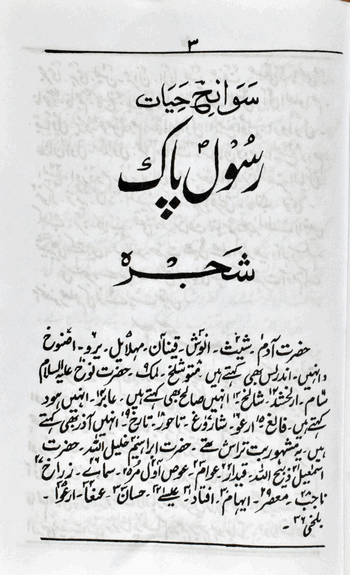 ۳
سَوَانِح حَیات
رسُول پاک
شجرہ
حضرت آدم۔ شیث۔ انوش۔ قینان۔ مہلایل۔ یرو۔ اخنوخ
انہیں۔ اندریس بھی کہتے ہیں۔ متوشلخ۔ ملک۔ حضرت نوح علیہ السلام
سام۔ ارفخشد۔ شالخ۔ انہیں صالح بھی کہتے ہیں۔ عابر۔ انہیں ہود
کہتے ہیں۔ فالغ۔ ارغو۔ شاروغ۔ ناحور۔ تارخ۔ انہیں آذر بھی کہتے
ہیں۔ یہ مشہور بت تراش تھے۔ حضرت ابراہیم خلیل اللہ۔ حضرت
اسمٰعیل ذبیح اللہ۔ قیدار۔ عوام۔ عوص اول۔ مرہ۔ سمائے۔ زراح۔
ناجب۔ معصر۔ ایہام۔ افتاد۔ عیسے۔ حسان۔ عنفا۔ ارعوا۔
بلخی۔